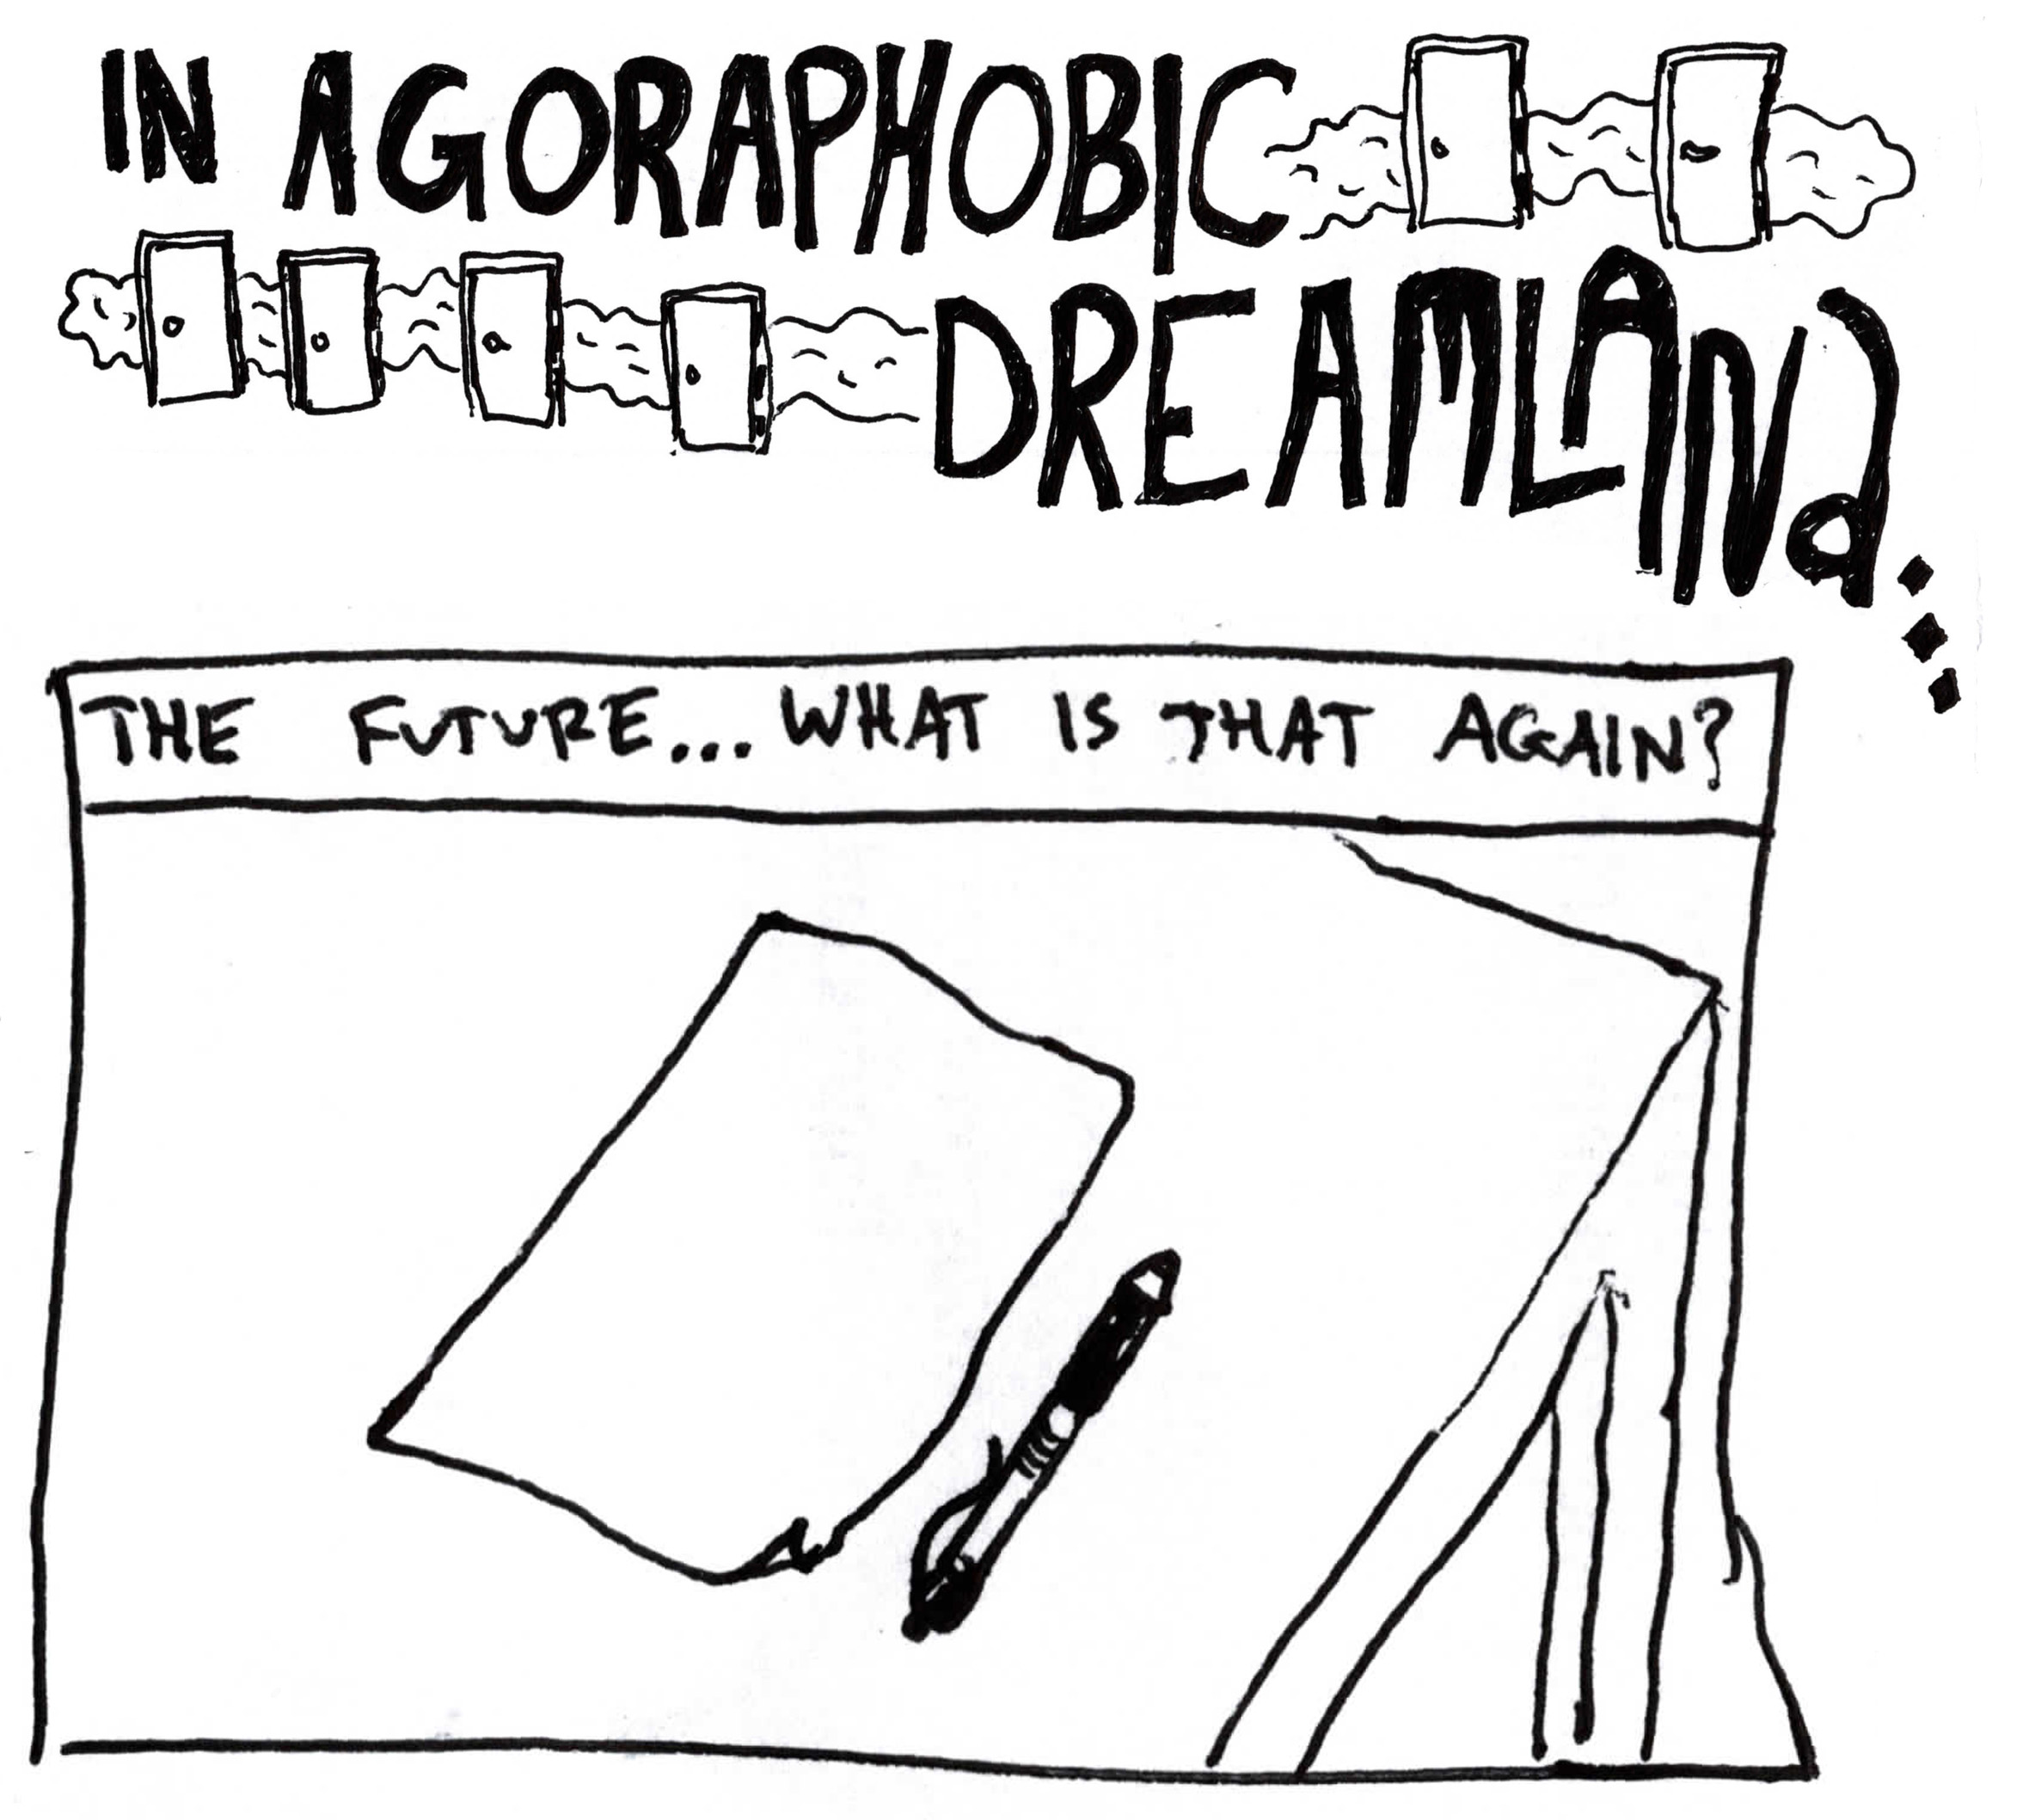 IN AGORAPHOBIC
DREAMLANd...
THE FUTURE... WHAT IS THAT AGAIN?